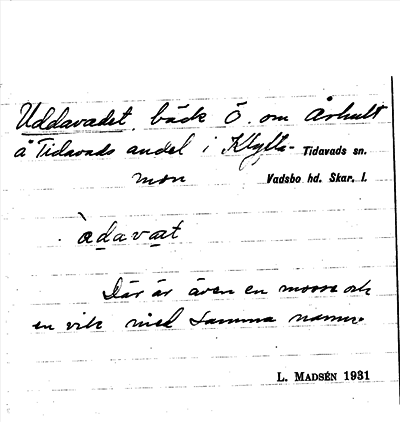 Uddavadet, bäck Ö. om Århult
å Tidavads andel i Klyfta- Tidavads sn.
mon Vadsbo hd. Skar. l.
àdavat
Där är även en mosse och
en vik med samma namn.
L. MADSÉN 1931